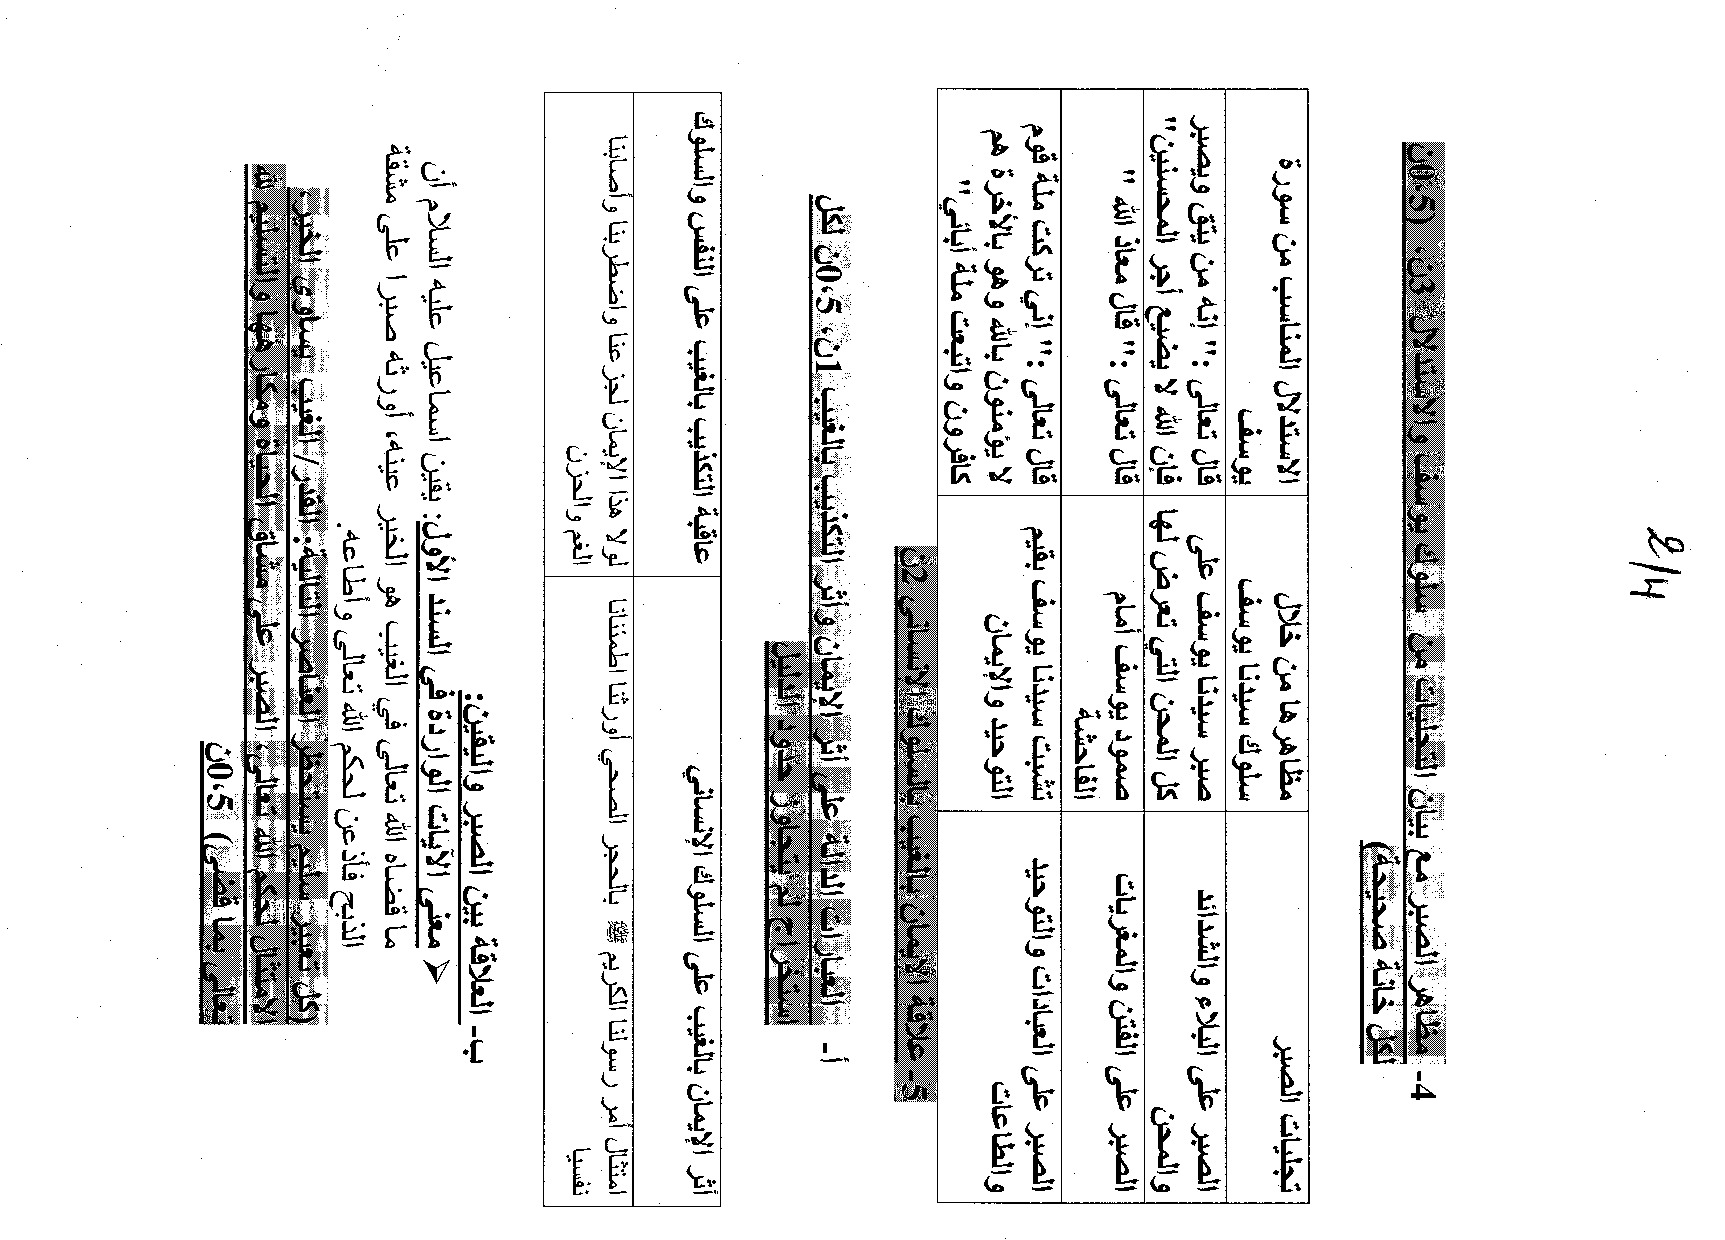 2/4
4- مظاهر الصبر مع بيان التجليات من سلوك يوسف والاستدلال 3ن، (0،5ن
لكل خانة صحيحة)
تجليات الصبر
مظاهرها من خلال
سلوك سيدنا يوسف
الاستدلال المناسب من سورة
يوسف
الصبر على البلاء والشدائد
والمحن
صبر سيدنا يوسف على
كل المحن التي تعرض لها
قال تعالى :" إنه من يتق ويصبر
فإن الله لا يضيع أجر المحسنين"
الصبر على الفتن والمغريات
صمود يوسف أمام
الفاحشة
قال تعالى :" قال معاذ الله "
الصبر على العبادات والتوحيد
والطاعات
تشبت سيدنا يوسف بقيم
التوحيد والإيمان
قال تعالى :" إني تركت ملة قوم
لا يؤمنون بالله وهو بالأخرة هم
كافرون واتبعت ملة أبائي"
5- علاقة الإيمان بالغيب بالسلوك الإنساني 2ن
أ- العبارات الدالة على أثر الإيمان وأثر التكذيب بالغيب 1ن، 0،5ن لكل
استخراج لم يتجاوز حدود الدليل
أثر الإيمان بالغيب على السلوك الإنساني
عاقبة التكذيب بالغيب على النفس والسلوك
امتثال أمر رسولنا الكريم ﷺ بالحجر الصحي أورثنا اطمئنانا
نفسيا
لولا هذا الإيمان لجزعنا واضطربنا وأصابنا
الغم والحزن
ب- العلاقة بين الصبر واليقين:
➢ معنى الآيات الواردة في السند الأول: يقين اسماعيل عليه السلام أن
ما قضاه الله تعالى في الغيب هو الخير عينه، أورثه صبرا على مشقة
الذبح فأذعن لحكم الله تعالى وأطاعه.
(كل تعبير سليم يستحظر العناصر التالية: القدر/ الغيب يساوي الخير،
الامتثال لحكم الله تعالى، الصبر على مشاق الحياة ومكارهها والتسليم لله
تعالى بما قضى) 0،5ن